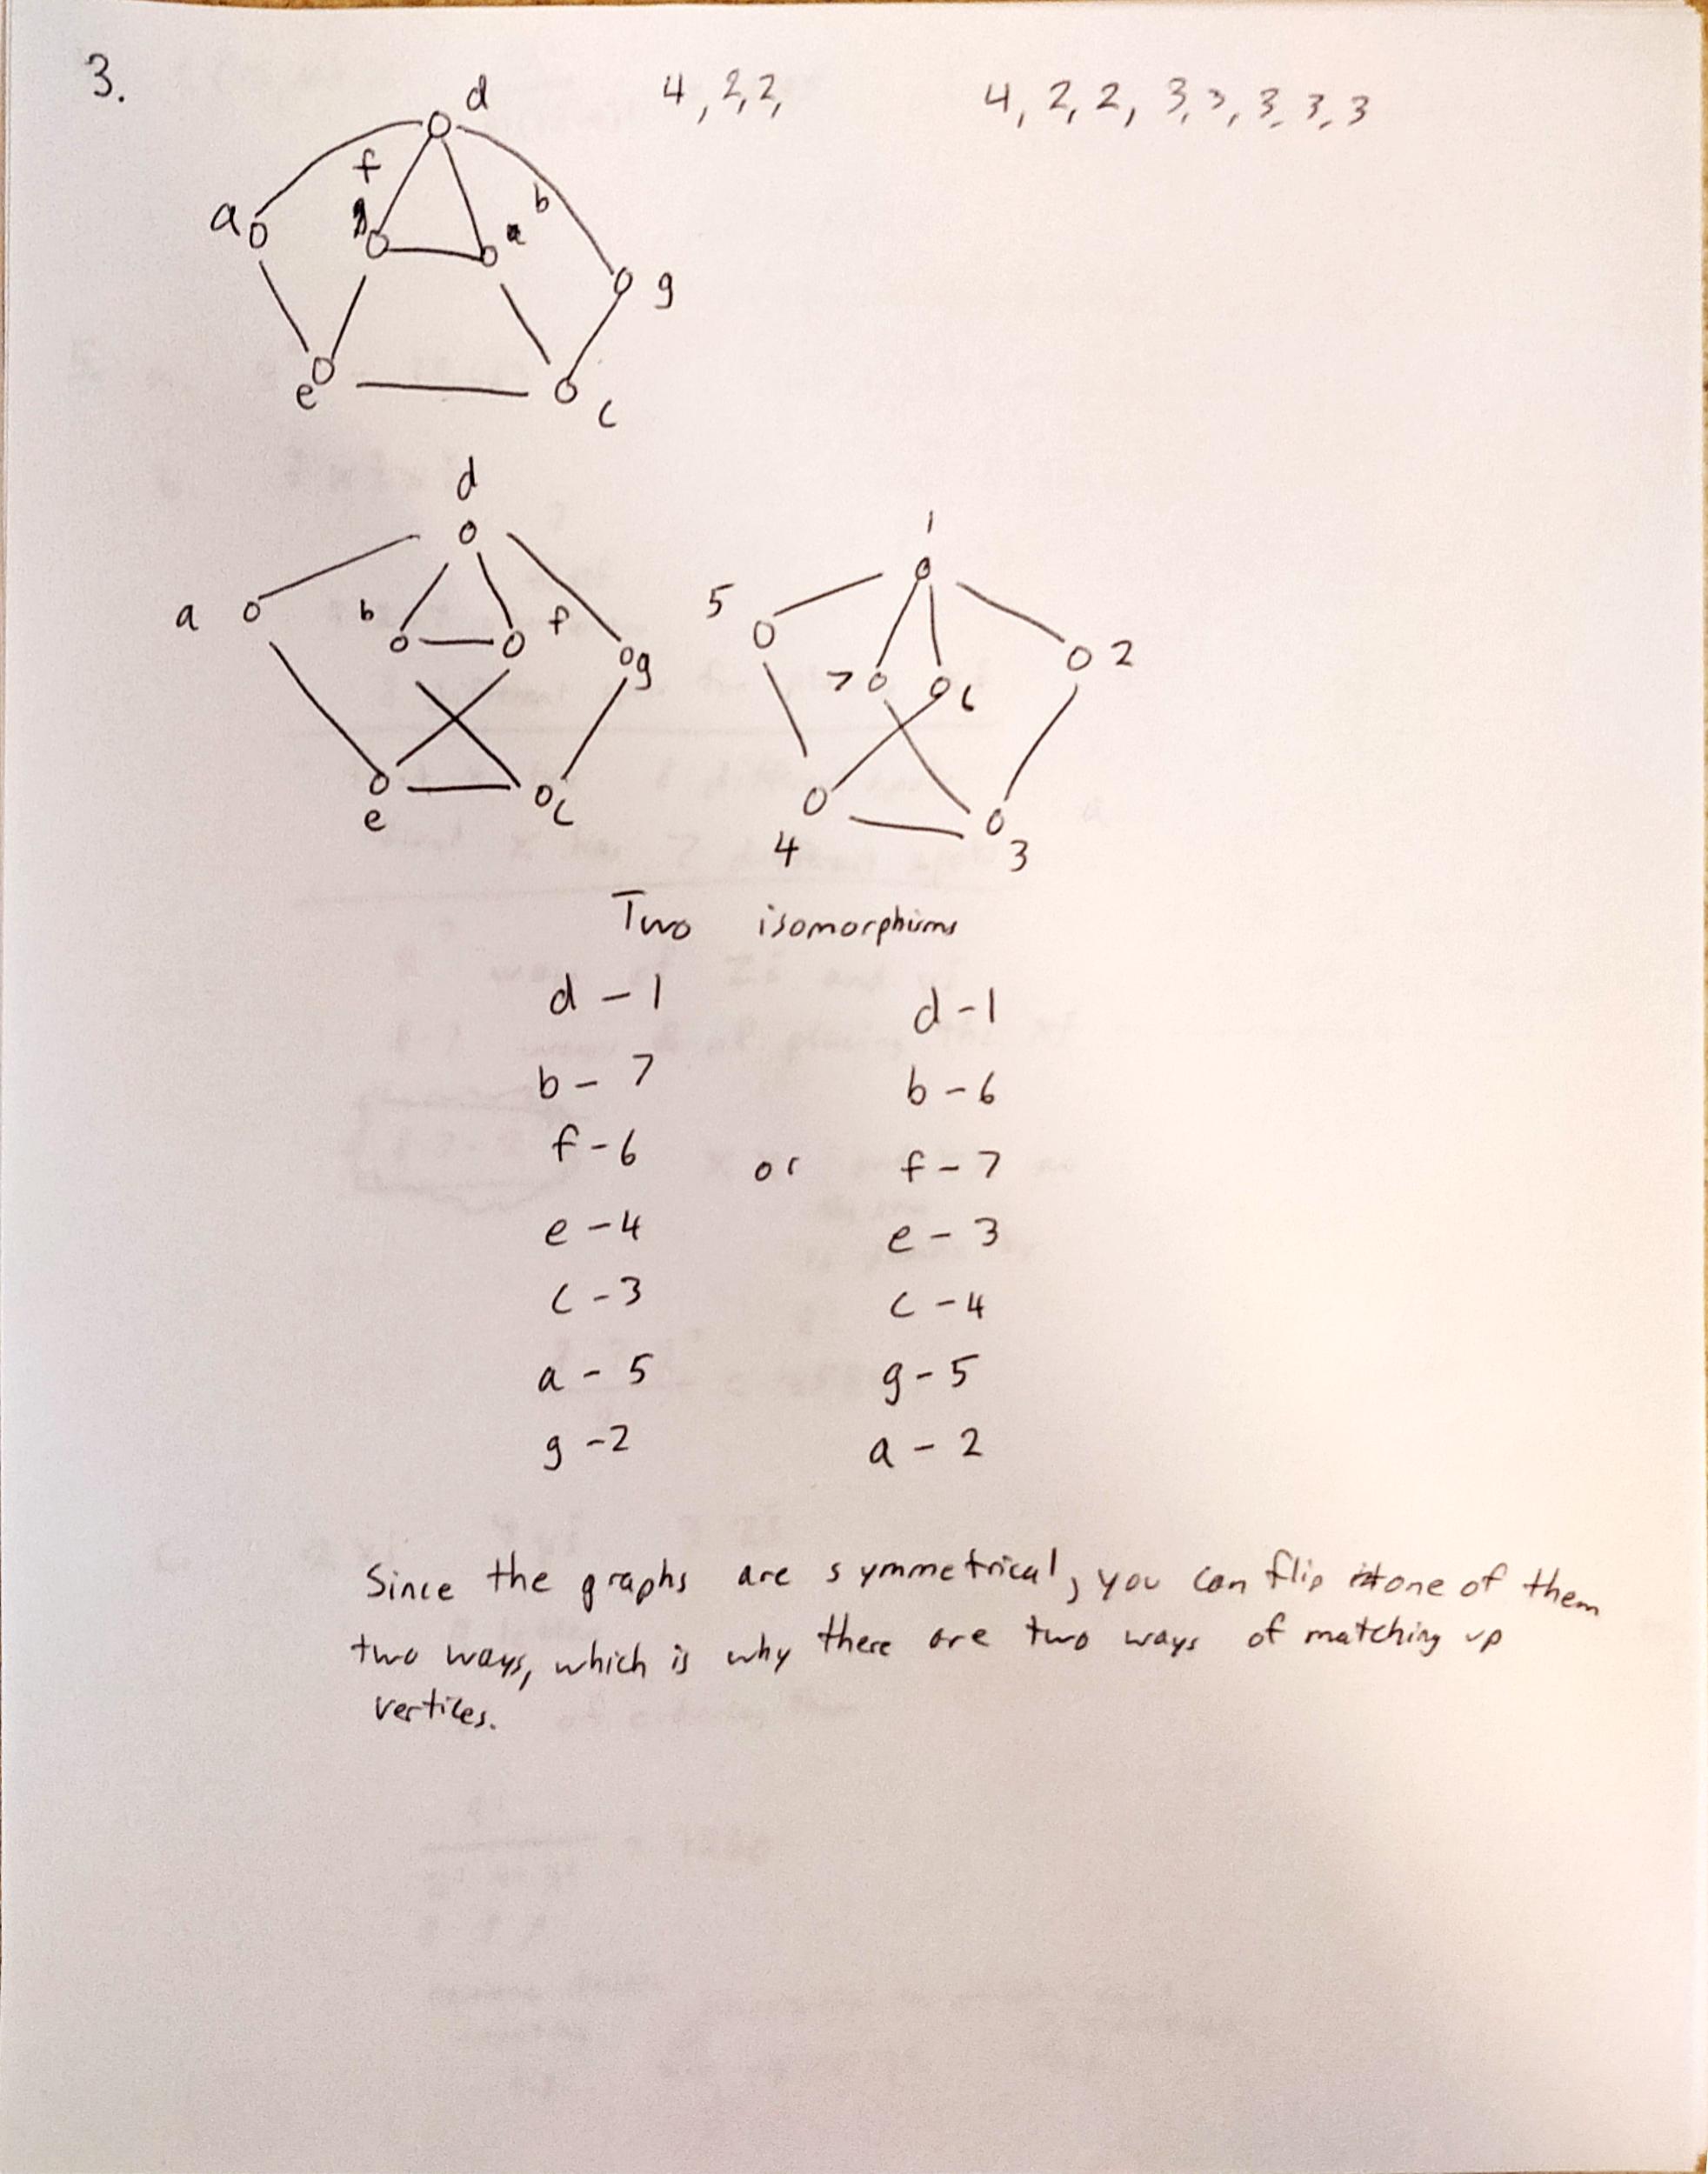 3.
d
4, 2, 2,
4, 2, 2, 3, 3, 3, 3, 3
f
b
a
g
e
c
d
a
b
f
g
e
c
1
5
7
6
2
4
3
Two isomorphisms
d - 1
d - 1
b - 7
b - 6
f - 6
or
f - 7
e - 4
e - 3
c - 3
c - 4
a - 5
g - 5
g - 2
a - 2
Since the graphs are symmetrical, you can flip one of them
two ways, which is why there are two ways of matching up
vertices.